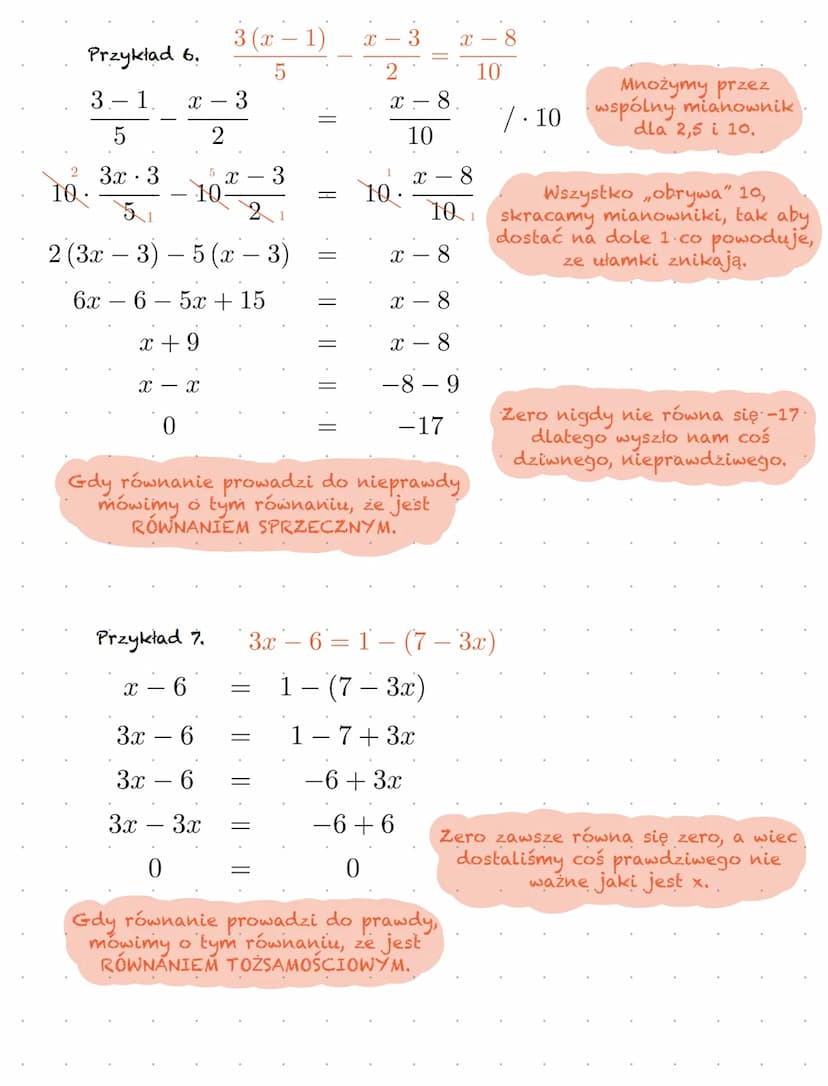 Przykład 6. 3(x − 1)/5 − (x − 3)/2 = (x − 8)/10
(3 − 1)/5 − (x − 3)/2 = (x − 8)/10 / · 10
Mnożymy przez
wspólny mianownik
dla 2,5 i 10.
2 5 1
10 · (3x · 3)/5 − 10 (x − 3)/2 = 10 · (x − 8)/10
1 1 1
Wszystko „obrywa” 10,
skracamy mianowniki, tak aby
dostać na dole 1 co powoduje,
ze ułamki znikają.
2(3x − 3) − 5(x − 3) = x − 8
6x − 6 − 5x + 15 = x − 8
x + 9 = x − 8
x − x = −8 − 9
0 = −17
Zero nigdy nie równa się −17
dlatego wyszło nam coś
dziwnego, nieprawdziwego.
Gdy równanie prowadzi do nieprawdy
mówimy o tym równaniu, że jest
RÓWNANIEM SPRZECZNYM.
Przykład 7. 3x − 6 = 1 − (7 − 3x)
x − 6 = 1 − (7 − 3x)
3x − 6 = 1 − 7 + 3x
3x − 6 = −6 + 3x
3x − 3x = −6 + 6
0 = 0
Zero zawsze równa się zero, a wiec
dostaliśmy coś prawdziwego nie
ważne jaki jest x.
Gdy równanie prowadzi do prawdy,
mówimy o tym równaniu, że jest
RÓWNANIEM TOŻSAMOŚCIOWYM.